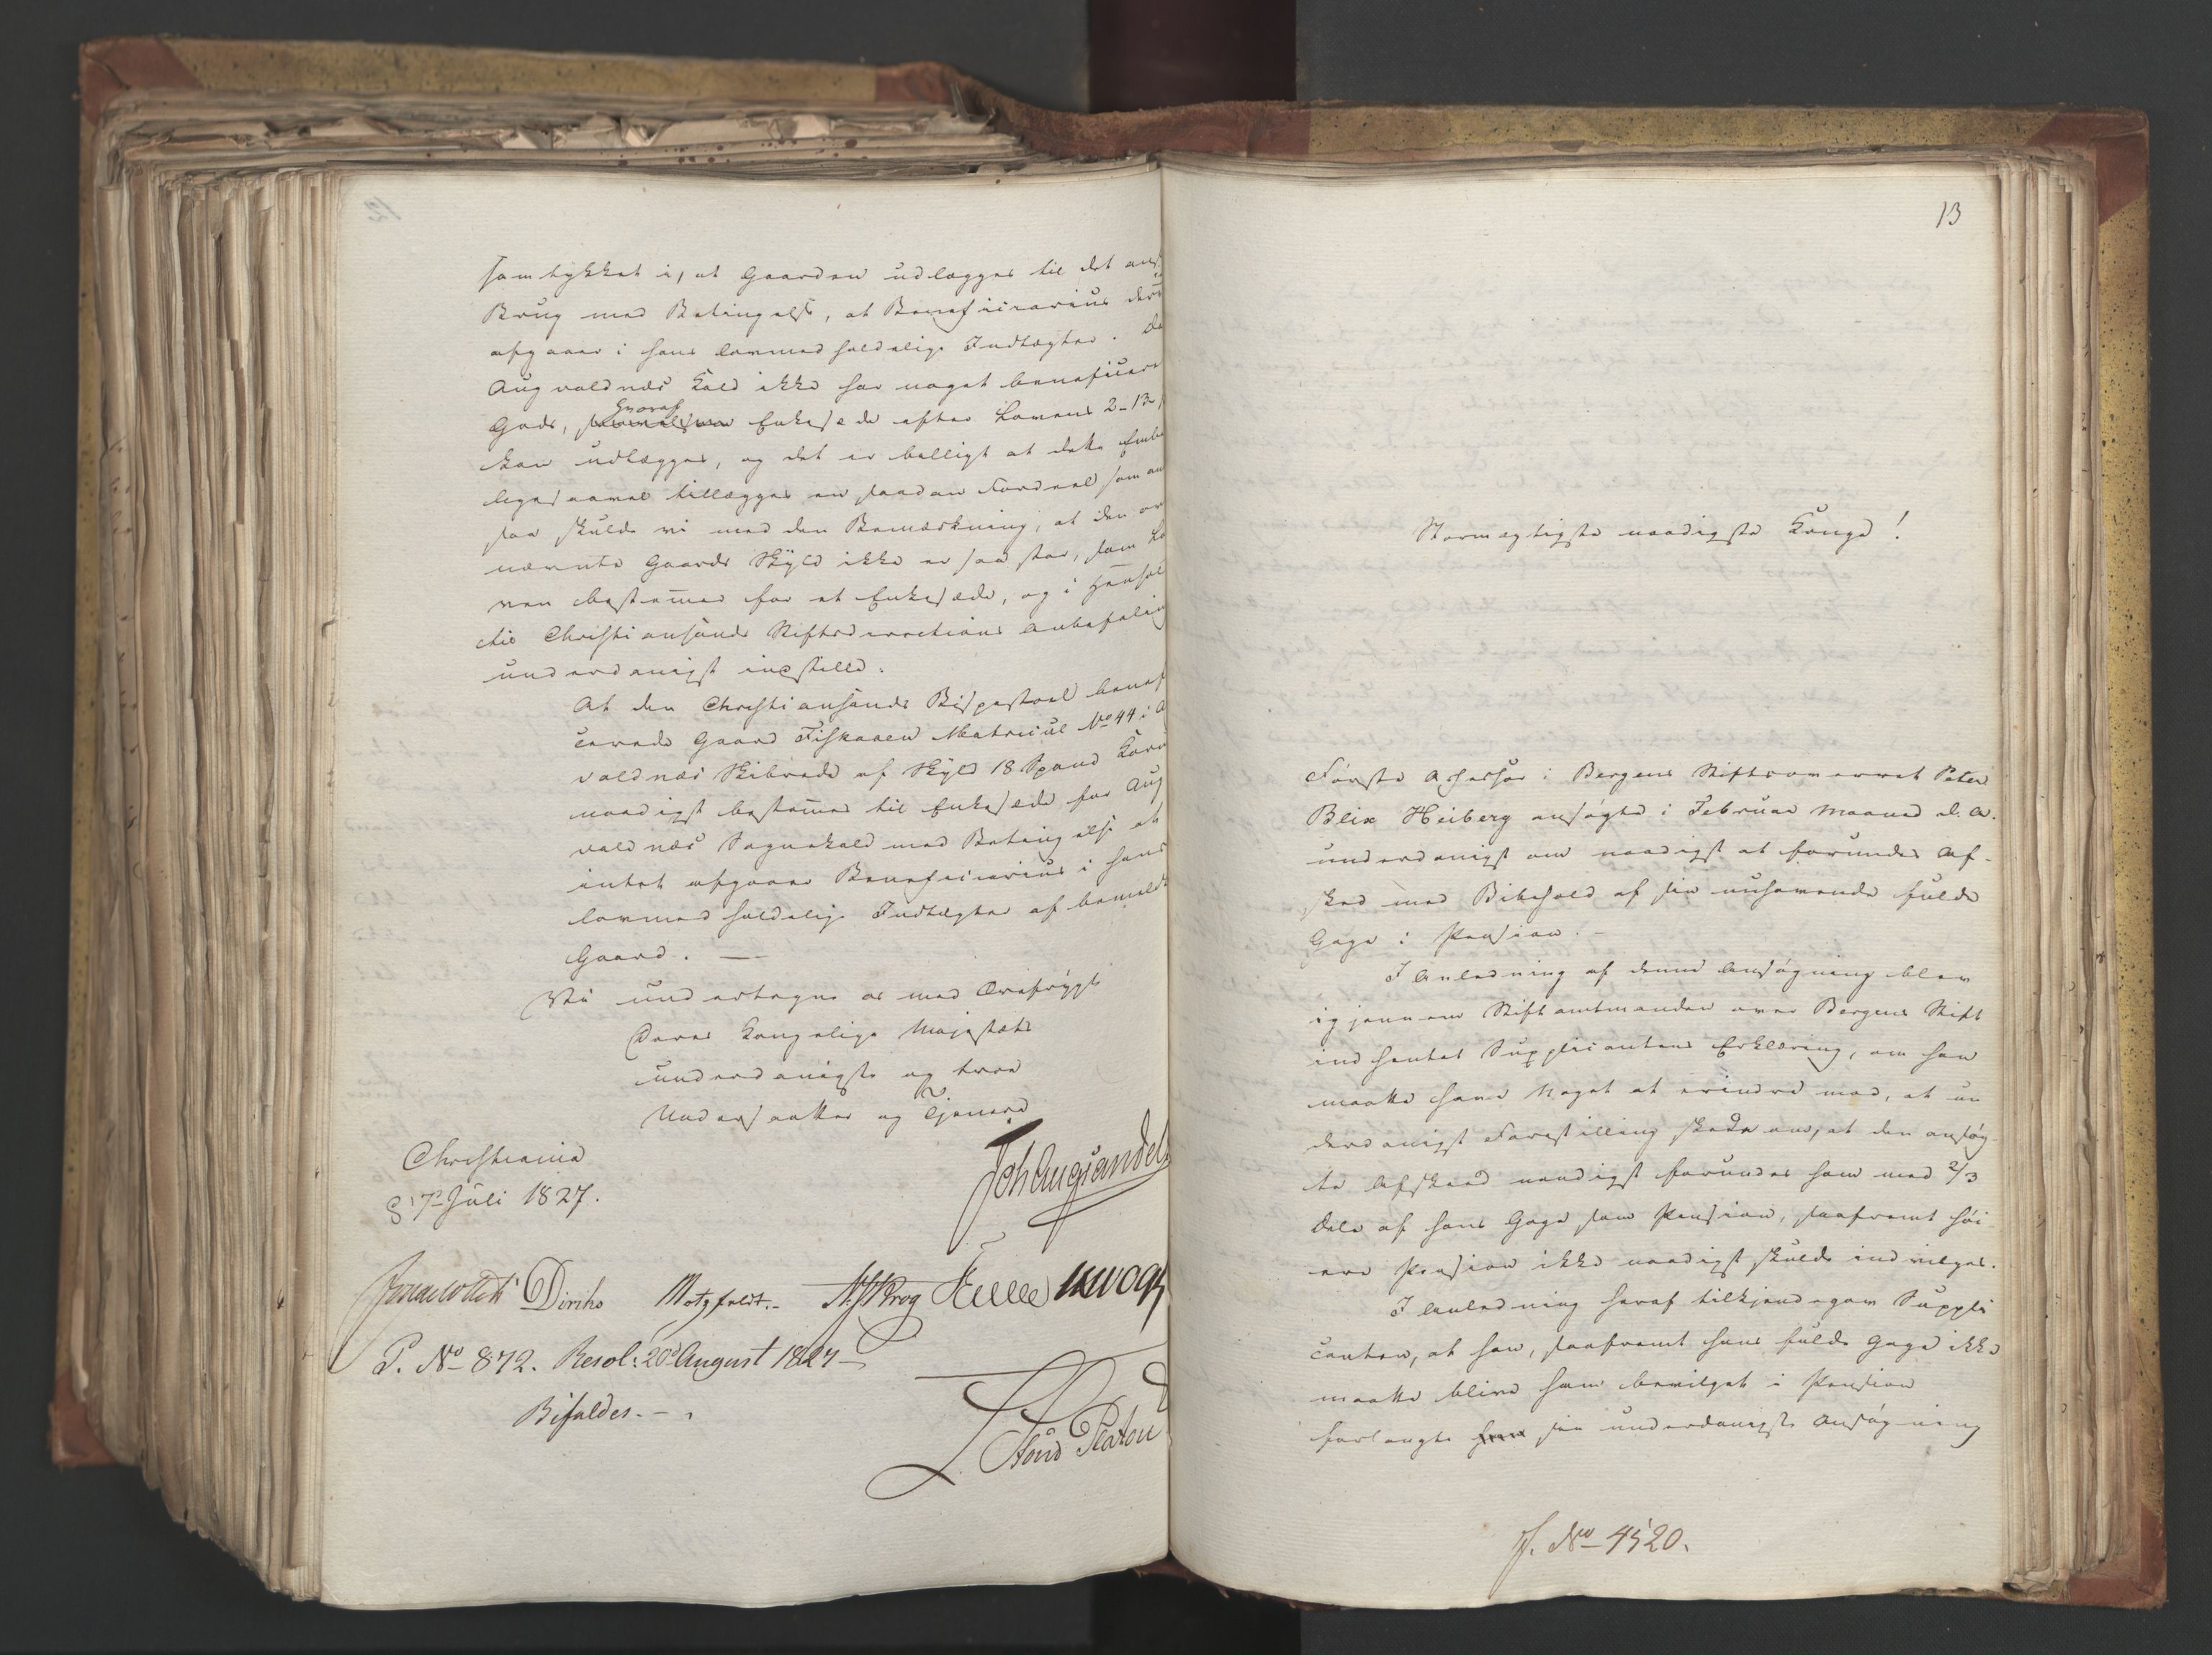 samtykket i, at Gaarden udlægges til det
Brug med Betingelse, at Beneficiarius
afgaaer i hans lovmed holdelige Indtægter. Da
Augvaldnæs Kald ikke har noget
Gods, hvoraf Enkesæde efter Lovens 2-13-
kan udlægges, og det er billigt at dette
ligesaavel tillægges en saadan Fordeel som
saa skulde vi med den Bemærkning, at den
nævnte Gaards Skyld ikke er saa stor, som Lo
ven bestemmer for et Enkesæde, og i Henhold
til Christiansands Stiftsdirections Anbefaling
underdanigst indstille:
At den Christiansands Bispestoel benefi
cerede Gaard Fiskaaen Matricul No 44 i
valdnæs Skibrede af Skyld 18 Spand Korn
naadigst bestemmes til Enkesæde for Aug
valdnæs Sognekald med Betingelse at
intet afgaaer Beneficiarius i hans
lovmedholdelige Indtægter af bemeldte
Gaard. —
Vi undertegne os med Ærefrygt
Deres Kongelige Majestæts
underdanigste og troe
Undersaatter og Tjenere
Christiania
d 7 Juli 1827.
Joh Aug Sandels
Jonas Collett Diriks Motzfeldt. Krog
P. No 872. Resol: 20d August 1827
Bifaldes. —
Stoud Platou
13
Stormægtigste naadigste Konge!
Første Assessor i Bergens Stiftsoverret Peter
Blix Heiberg ansøgte i Februar Maaned d. A.
underdanigst om naadigst at forundes Af-
sked med Bibehold af sin nuhavende fulde
Gage i Pension. —
I Anledning af denne Ansøgning blev
igjennem Stiftamtmanden over Bergens Stift
indhentet Supplicantens Erklæring, om han
maatte have Noget at erindre mod, at un
derdanigst Forestilling skede om, at den ansøg
te Afskeed naadigst forundes ham med 2/3
Dele af hans Gage som Pension, saafremt høi
ere Pension ikke naadigst skulde indvilges.
I Anledning heraf tilkjendegav Suppli
canten, at han, saafremt hans fulde Gage ikke
maatte blive ham bevilget i Pension
forlangte sin underdanigste Ansøgning
J. No 4520.